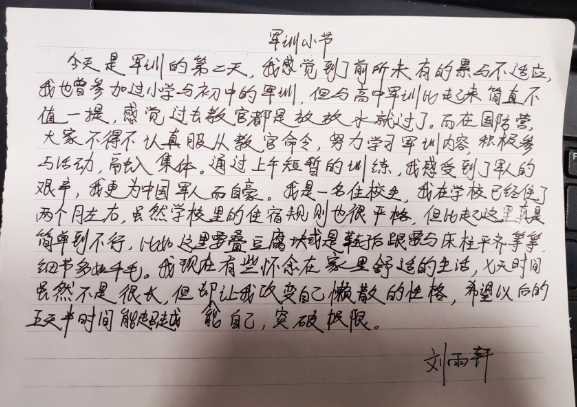 军训小节
今天是军训的第二天,我感觉到了前所未有的累与不适应,
我也曾参加过小学与初中的军训,但与高中军训比起来简直不
值一提,感觉过去教官都是放放水就过了。而在国防营,
大家不得不认真服从教官命令,努力学习军训内容,积极参
与活动,融入集体。通过上午短暂的训练,我感受到了军人的
艰辛,我更为中国军人而自豪。我是一名住校生,我在学校已经住了
两个月左右,虽然学校里的住宿规则也很严格,但比起这里真是
简单到不行,比如这里要叠豆腐块或是鞋后跟要与床柱平齐等等
细节多如牛毛。我现在有些怀念在家里舒适的生活,七天时间
虽然不是很长,但却让我改变自己懒散的性格,希望以后的
五天半时间能超越 能自己,突破极限。
刘雨轩